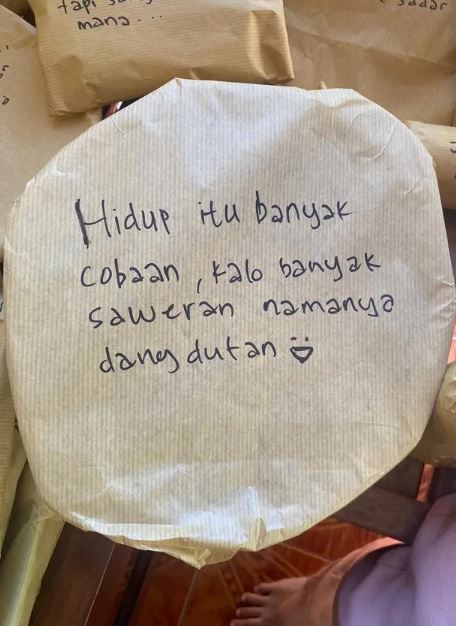 mana...
sadar
Hidup itu banyak
cobaan, kalo banyak
saweran namanya
dangdutan